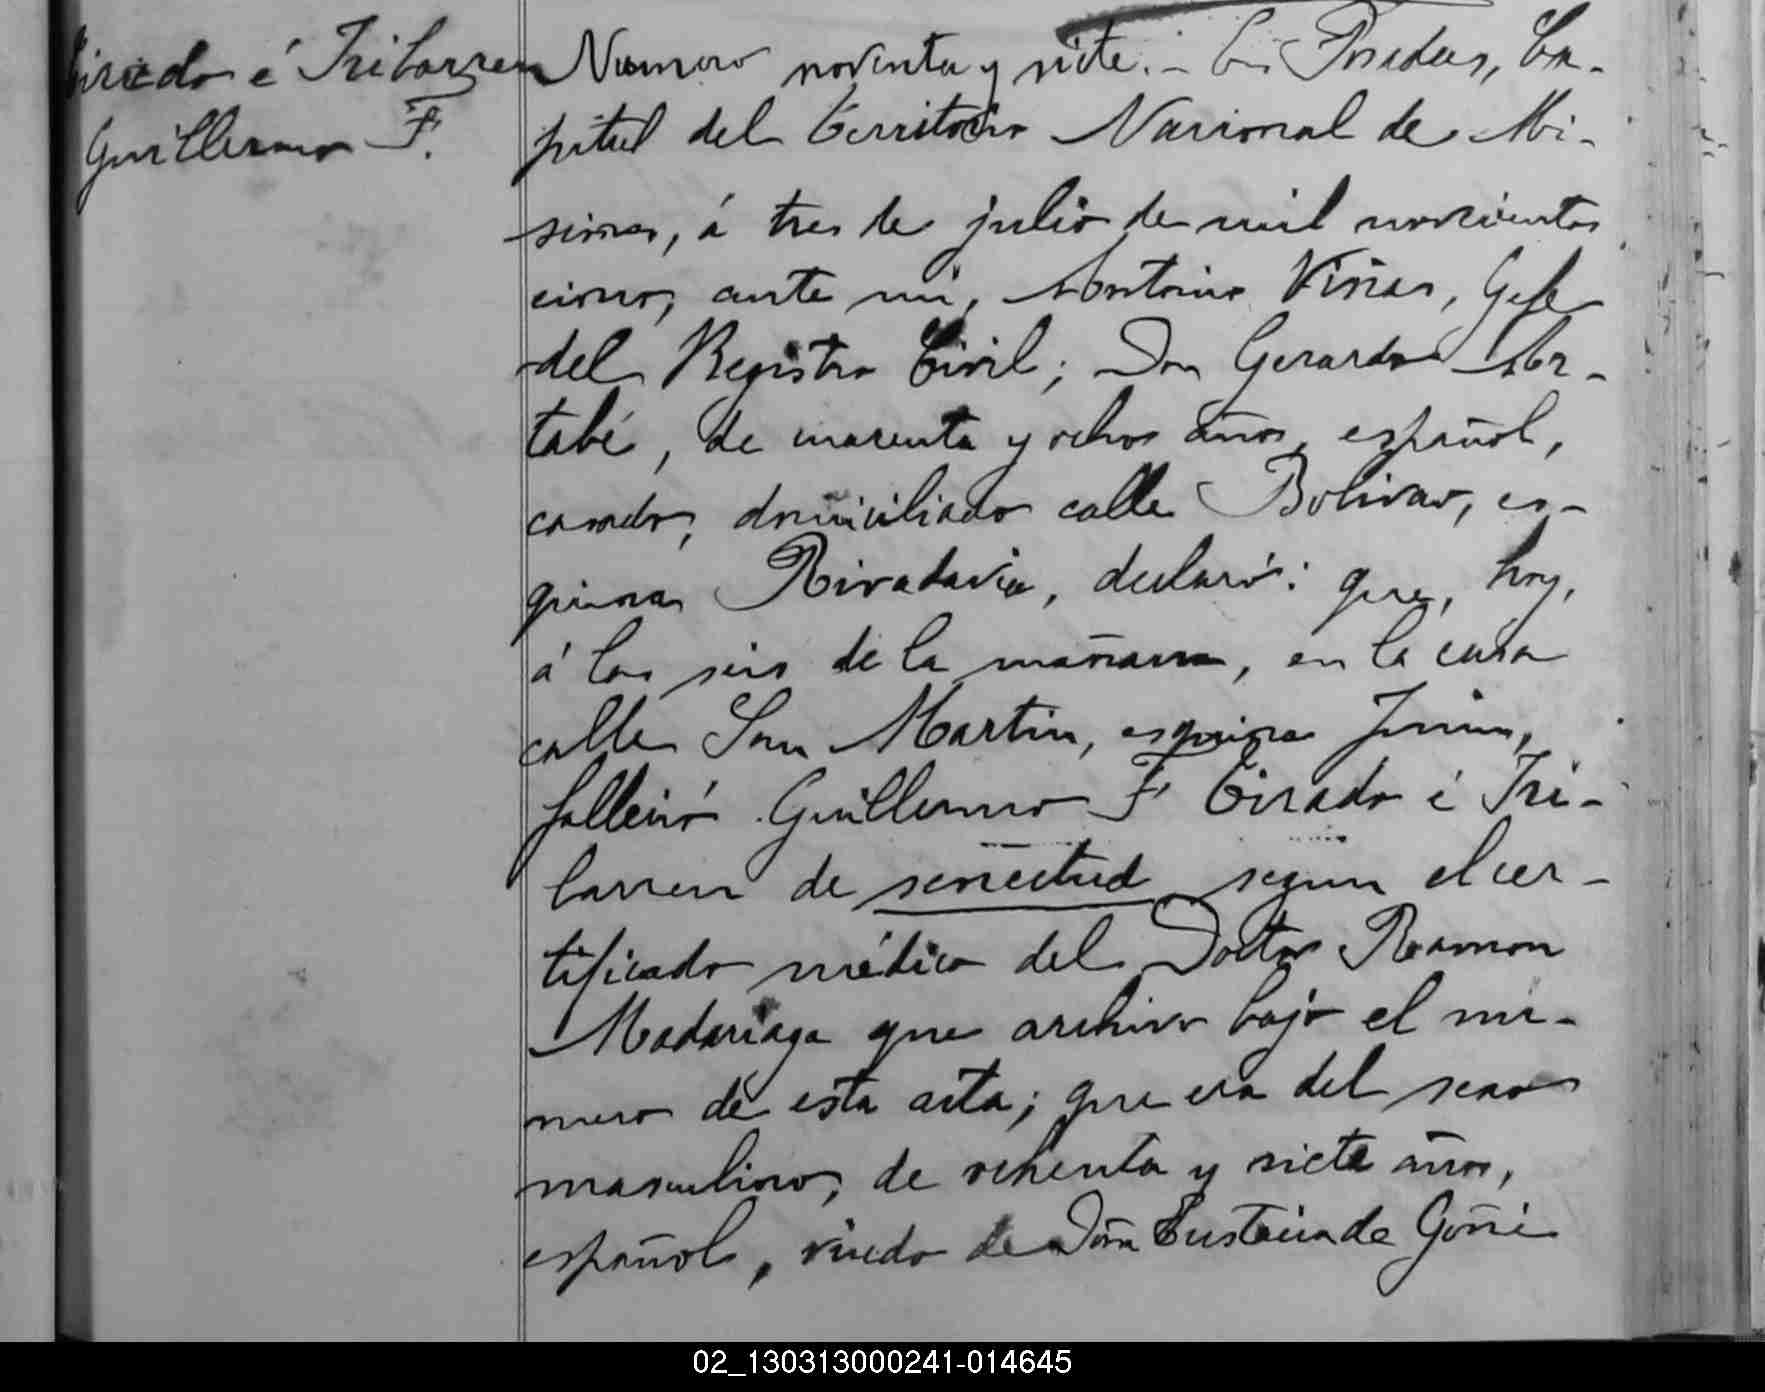 Tirado é Iribarren
Guillermo F.
Numero noventa y siete.- En Posadas, Ca-
pital del Territorio Nacional de Mi-
siones, á tres de julio de mil novecientos
cinco, ante mi, Antonio Viñas, Gefe
del Registro Civil; Don Gerardo Ar-
tabé, de cuarenta y ochos años, español,
casado, domiciliado calle Bolivar, es-
quina Rivadavia, declaró: que, hoy,
á las seis de la mañana, en la casa
calle San Martin, esquina Junin,
falleció Guillermo F Tirado é Iri-
barren de senectud segun el cer-
tificado médico del Doctor Ramon
Madariaga que archivo bajo el nu-
mero de esta acta; que era del sexo
masculino, de ochenta y siete años,
español, viudo de Doña Eustacia de Goñi
02_130313000241-014645